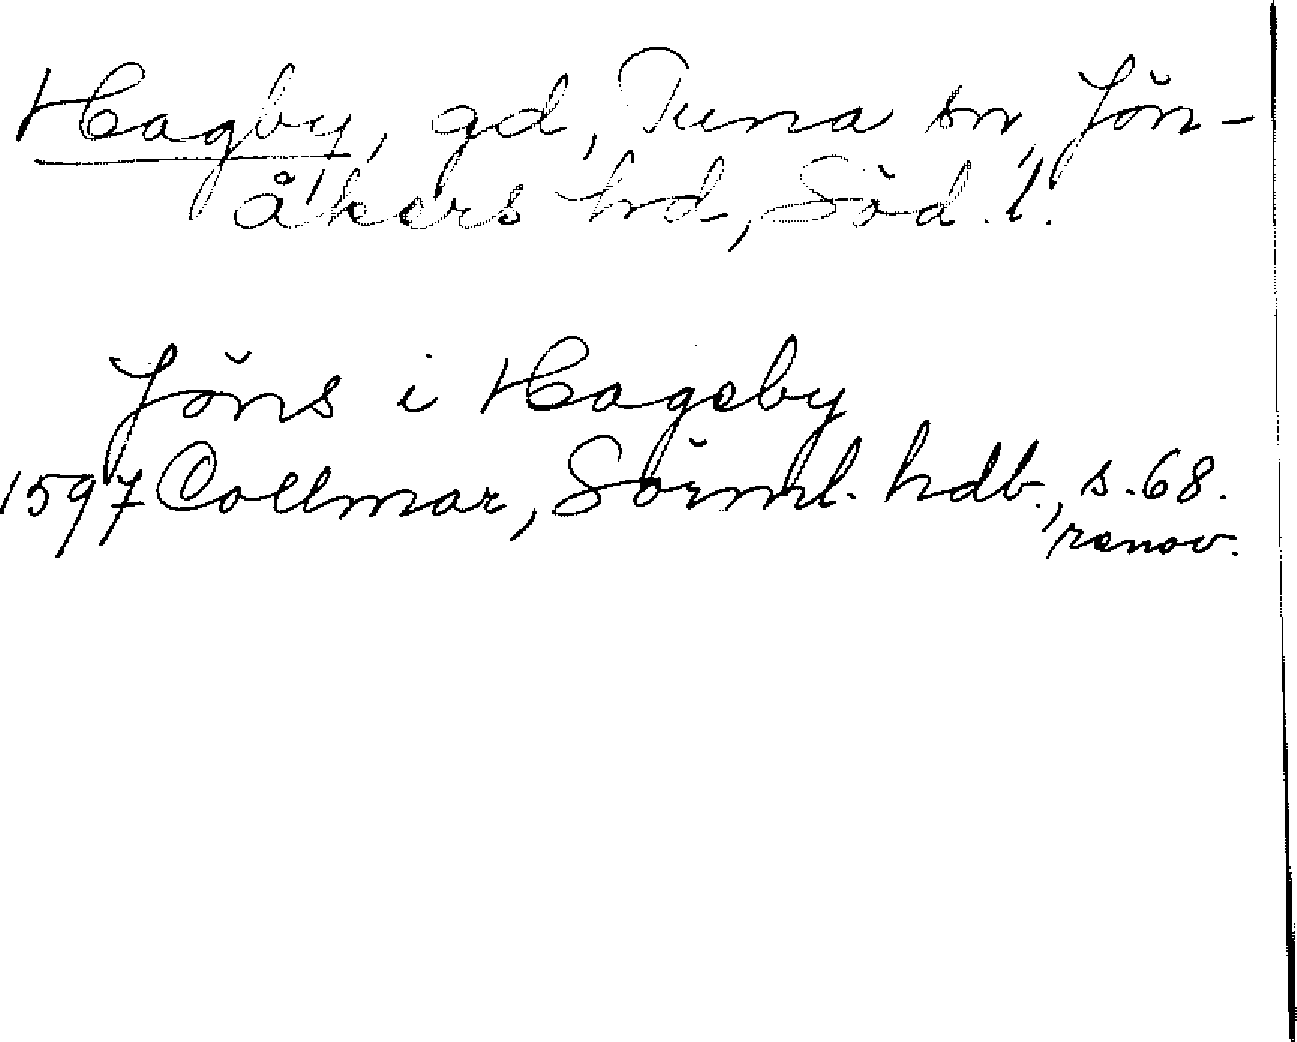 Hagby, gd, Tuna sn, Jön-
åkers hd, Söd. l.
Jöns i Hageby
1597 Collmar, Sörml. hdb., s. 68.
renov.